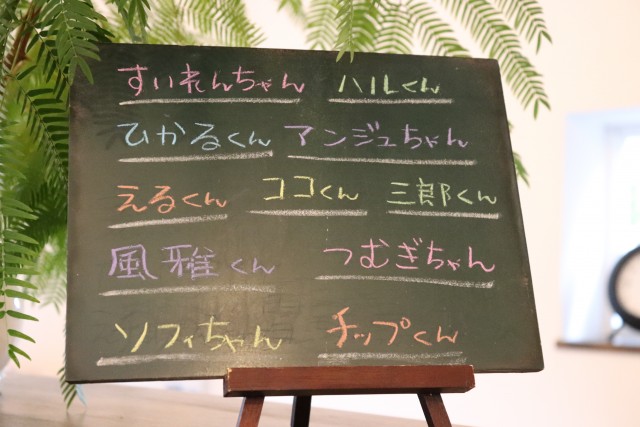 すいれんちゃん ハルくん
ひかるくん アンジュちゃん
えるくん ココくん 三郎くん
風雅くん つむぎちゃん
ソフィちゃん チップくん